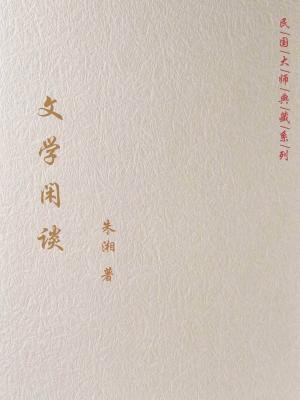 民国大师典藏系列
文学闲谈
朱湘 著